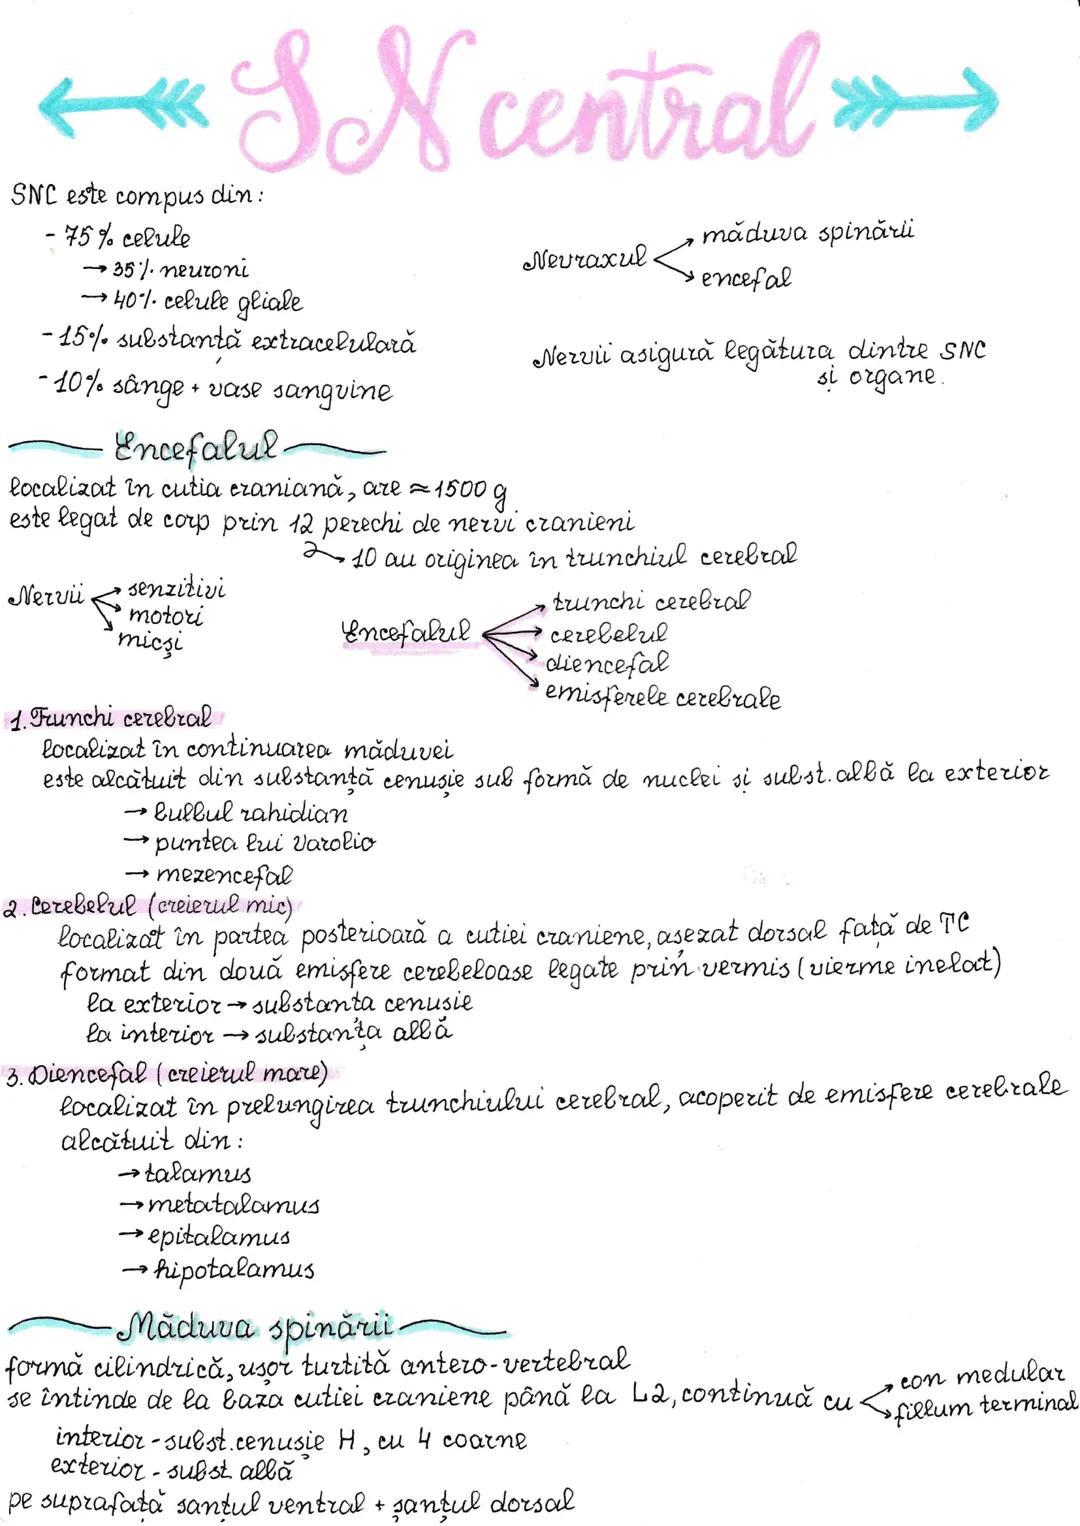 SN central
SNC este compus din:
- 75% celule
→ 35% neuroni
→ 40% celule gliale
- 15% substanță extracelulară
- 10% sânge + vase sanguine
Nevraxul
→ măduva spinării
→ encefal
Nervii asigură legătura dintre SNC
și organe.
Encefalul
localizat în cutia craniană, are ≈ 1500 g
este legat de corp prin 12 perechi de nervi cranieni
→ 10 au originea în trunchiul cerebral
Nervii
→ senzitivi
→ motori
→ micși
Encefalul
→ trunchi cerebral
→ cerebelul
→ diencefal
→ emisferele cerebrale
1. Trunchi cerebral
localizat în continuarea măduvei
este alcătuit din substanță cenușie sub formă de nuclei și subst. albă la exterior
→ bulbul rahidian
→ puntea lui Varolio
→ mezencefal
2. Cerebelul (creierul mic)
localizat în partea posterioară a cutiei craniene, așezat dorsal față de TC
format din două emisfere cerebeloase legate prin vermis (vierme inelat)
la exterior → substanta cenușie
la interior → substanța albă
3. Diencefal (creierul mare)
localizat în prelungirea trunchiului cerebral, acoperit de emisfere cerebrale
alcătuit din:
→ talamus
→ metatalamus
→ epitalamus
→ hipotalamus
Măduva spinării
formă cilindrică, ușor turtită antero-vertebral
se întinde de la baza cutiei craniene până la L2, continuă cu
→ con medular
→ fillum terminal
interior - subst. cenușie H, cu 4 coarne
exterior - subst. albă
pe suprafață șanțul ventral + șanțul dorsal